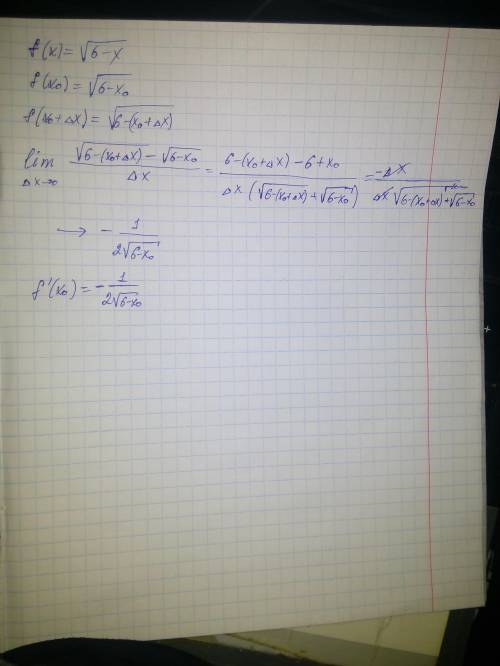 f(x) = √(6-x)
f(x₀) = √(6-x₀)
f(x₀+Δx) = √(6-(x₀+Δx))
lim Δx→0 (√(6-(x₀+Δx)) - √(6-x₀)) / Δx = (6-(x₀+Δx)-6+x₀) / (Δx(√(6-(x₀+Δx)) + √(6-x₀))) = -Δx / (Δx √(6-(x₀+Δx)) + √(6-x₀))
→ - 1 / (2√(6-x₀))
f'(x₀) = - 1 / (2√(6-x₀))